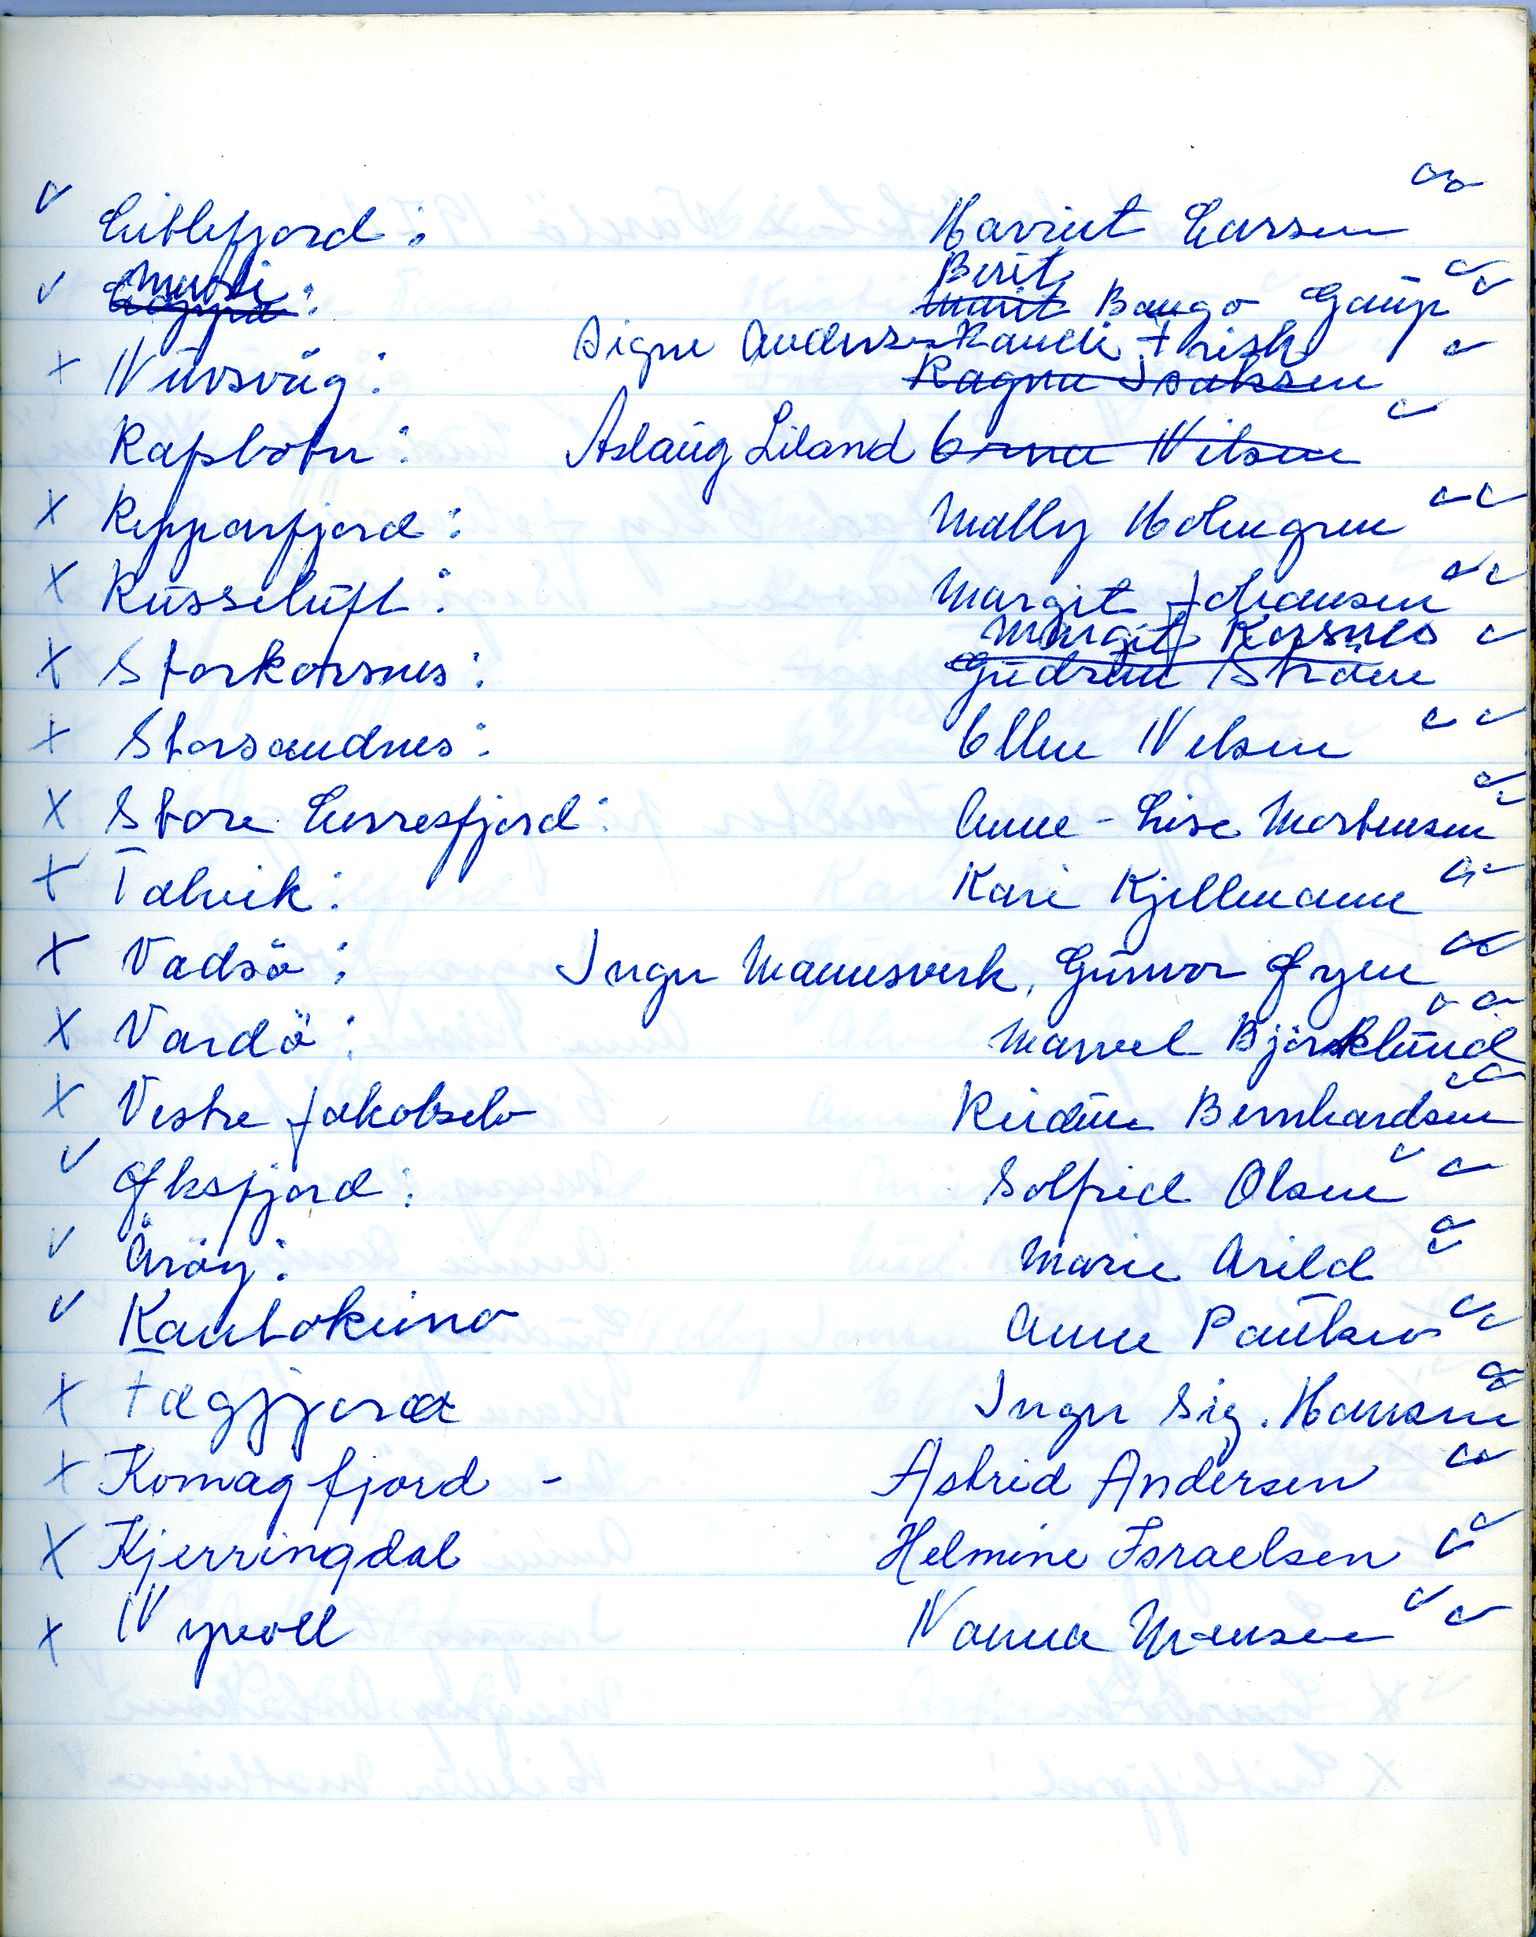 ✓ Lillefjord: Harriet Larsen
Berit
✓ : Marit Bango Gaup
Signe Anders Randi Frisk
x Nuvsvåg: Ragna Isaksen
Rafsbotn: Aslaug Liland Erna Nilsen
x Repparfjord: Mally Holmgren
x Russeluft: Margit Johansen
Margit Korsnes
x Storkorsnes: Gudrun Ström
x Storsandnes: Ellen Nilsen
x Store Lerresfjord: Anne-Lise Mortensen
x Talvik: Kari Kjellmann
x Vadsö: Inger Mannsverk, Gunvor Øyen
x Vardö: Marvel Björklund
x Vestre Jakobselv Reidun Bernhardsen
✓ Øksfjord: Solfrid Olsen
✓ Åröy: Marie Arild
✓ Kautokeino Anne Paulsen
x Fægfjord Inger Sig. Hansen
x Komagfjord - Astrid Andersen
x Kjerringdal Helmine Israelsen
x Nyvoll Nanna Monsen